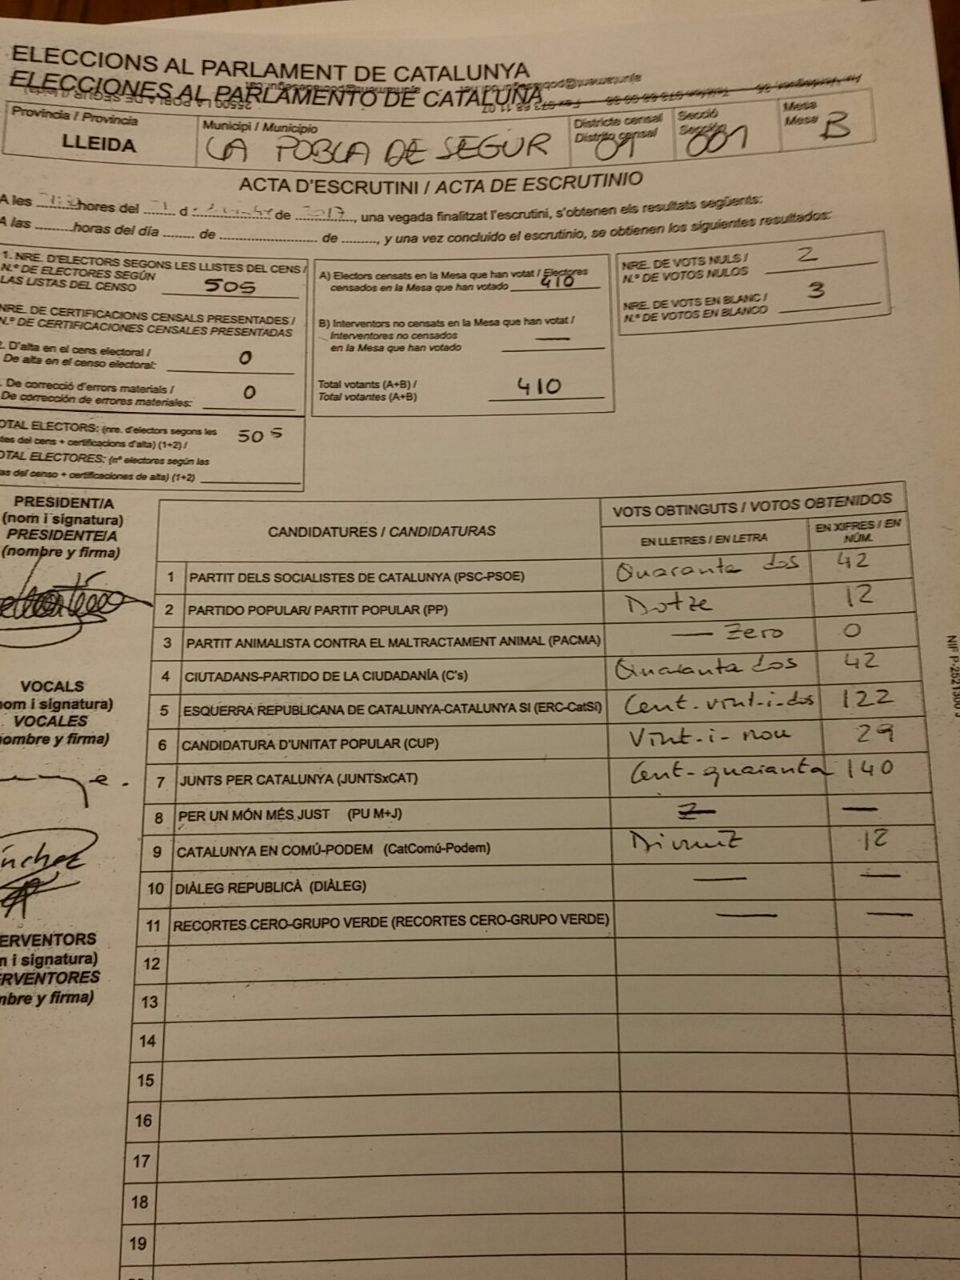 ELECCIONS AL PARLAMENT DE CATALUNYA
ELECCIONES AL PARLAMENTO DE CATALUÑA
Província / Provincia
LLEIDA
Municipi / Municipio
LA POBLA DE SEGUR
Districte censal
Distrito censal
01
Secció
Sección
001
Mesa
Mesa
B
ACTA D'ESCRUTINI / ACTA DE ESCRUTINIO
A les hores del d de 2017, una vegada finalitzat l'escrutini, s'obtenen els resultats següents:
A las ........horas del día ........ de ........................ de ........, y una vez concluido el escrutinio, se obtienen los siguientes resultados:
1. NRE. D'ELECTORS SEGONS LES LLISTES DEL CENS /
N.º DE ELECTORES SEGÚN
LAS LISTAS DEL CENSO
505
NRE. DE CERTIFICACIONS CENSALS PRESENTADES /
N.º DE CERTIFICACIONES CENSALES PRESENTADAS
. D'alta en el cens electoral /
De alta en el censo electoral:
0
. De correcció d'errors materials /
De corrección de errores materiales:
0
OTAL ELECTORS: (nre. d'electors segons les
tes del cens + certificacions d'alta) (1+2) /
OTAL ELECTORES: (nº electores según las
as del censo + certificaciones de alta) (1+2)
505
A) Electors censats en la Mesa que han votat / Electores
censados en la Mesa que han votado
410
B) Interventors no censats en la Mesa que han votat /
Interventores no censados
en la Mesa que han votado
—
Total votants (A+B) /
Total votantes (A+B)
410
NRE. DE VOTS NULS /
N.º DE VOTOS NULOS
2
NRE. DE VOTS EN BLANC /
N.º DE VOTOS EN BLANCO
3
PRESIDENT/A
(nom i signatura)
PRESIDENTE/A
(nombre y firma)
VOCALS
nom i signatura)
VOCALES
ombre y firma)
nchez
ERVENTORS
n i signatura)
RVENTORES
mbre y firma)
CANDIDATURES / CANDIDATURAS
VOTS OBTINGUTS / VOTOS OBTENIDOS
EN LLETRES / EN LETRA
EN XIFRES / EN NÚM.
1 PARTIT DELS SOCIALISTES DE CATALUNYA (PSC-PSOE) Quaranta dos 42
2 PARTIDO POPULAR/ PARTIT POPULAR (PP) Dotze 12
3 PARTIT ANIMALISTA CONTRA EL MALTRACTAMENT ANIMAL (PACMA) — Zero 0
4 CIUTADANS-PARTIDO DE LA CIUDADANÍA (C's) Quaranta dos 42
5 ESQUERRA REPUBLICANA DE CATALUNYA-CATALUNYA SI (ERC-CatSí) Cent-vint-i-dos 122
6 CANDIDATURA D'UNITAT POPULAR (CUP) Vint-i-nou 29
7 JUNTS PER CATALUNYA (JUNTSxCAT) Cent-quaranta 140
8 PER UN MÓN MÉS JUST (PU M+J) —
9 CATALUNYA EN COMÚ-PODEM (CatComú-Podem) 12
10 DIÀLEG REPUBLICÀ (DIÀLEG) — —
11 RECORTES CERO-GRUPO VERDE (RECORTES CERO-GRUPO VERDE) — —
12
13
14
15
16
17
18
19